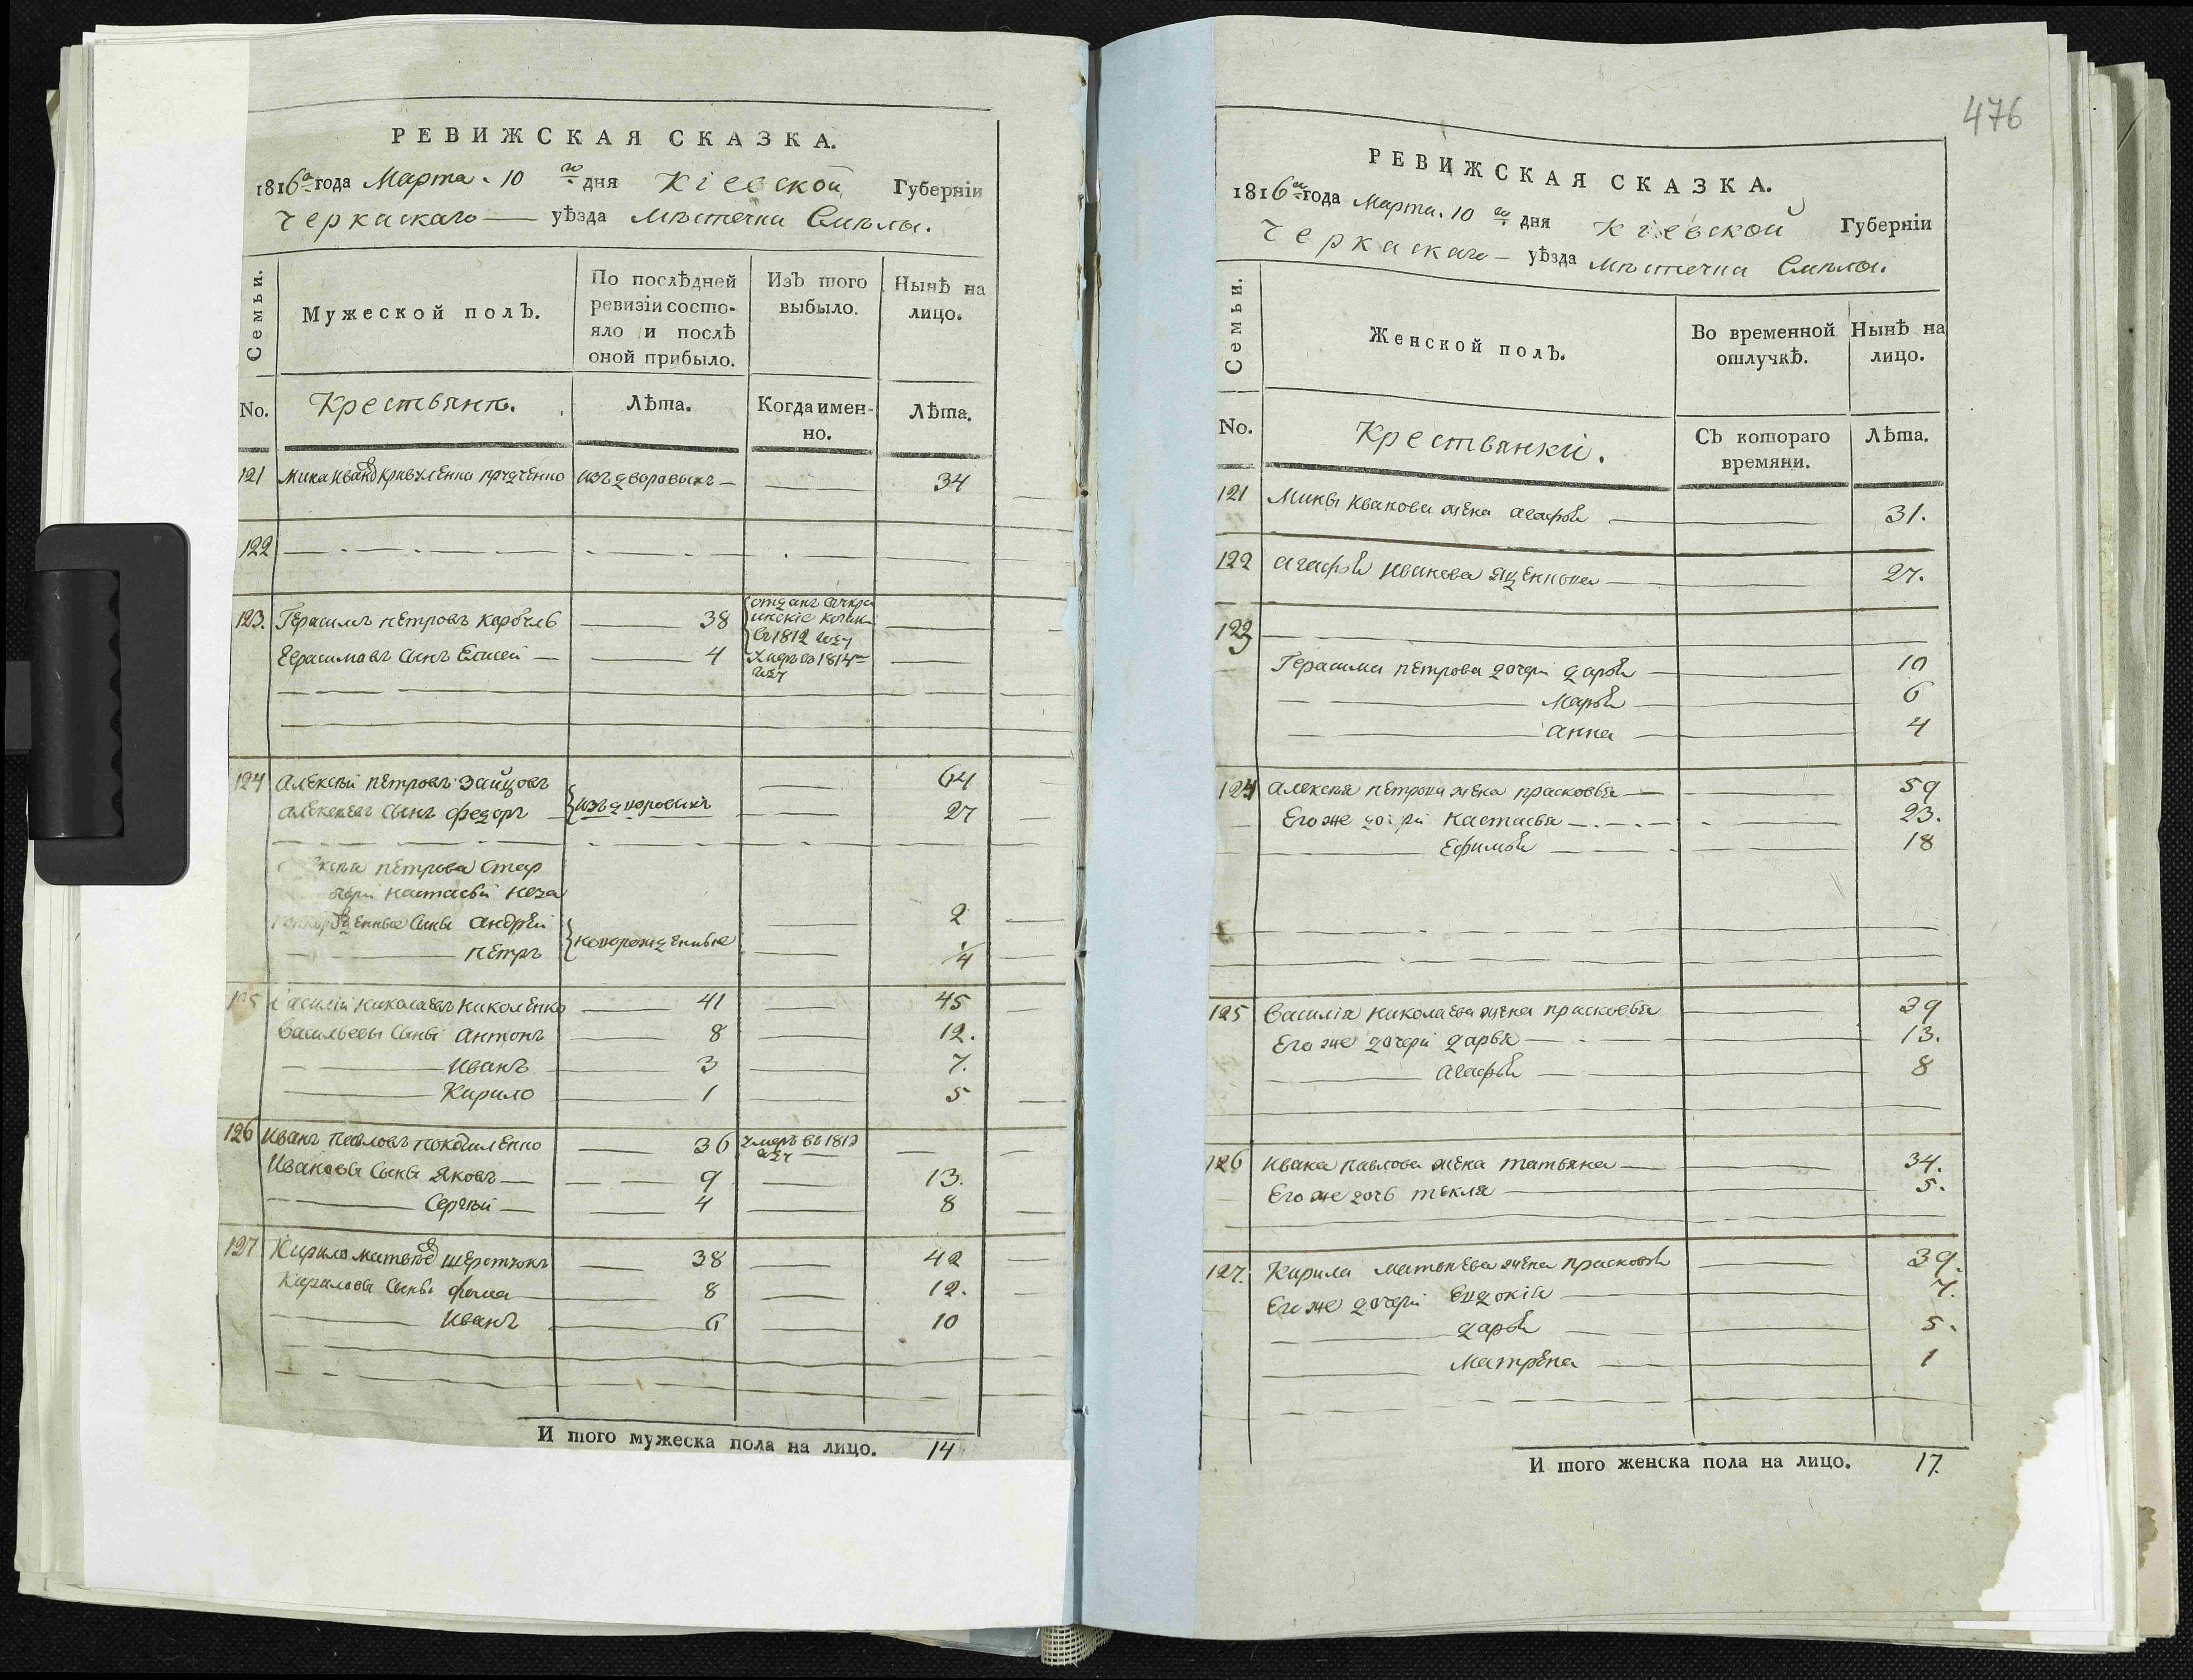 РЕВИЖСКАЯ СКАЗКА.
1816го года Марта 10 го дня Кіевской Губерніи
Черкаскаго уѣзда Мѣстечка Смѣлы.
Семьи. Мужеской полъ. По послѣдней ревизіи состояло и послѣ оной прибыло. Изъ того выбыло. Нынѣ на лицо.
No. Крестьянъ. Лѣта. Когда именно. Лѣта.
121 Мина Ивановъ изъ дворовыхъ 34
122
123. Герасимъ Петровъ 38 отданъ въ 1812 году
Герасимовъ сынъ Елисей 4 умеръ въ 1814 году
124 Алексѣй Петровъ Зайцовъ 64
Алексѣевъ сынъ Федоръ изъ дворовыхъ 27
Петрова
Настасьи
сыны Андрей 2
Петръ новорожденные 1/4
125 Василій Николаевъ Николенко 41 45
Васильевы сыны Антонъ 8 12.
Иванъ 3 7.
Кирило 1 5
126 Иванъ Павловъ 36 умеръ въ 1813 году
Ивановы сыны Яковъ 9 13.
Сергѣй 4 8
127 Кирило Матвѣевъ 38 42
Кириловы сыны Фома 8 12.
Иванъ 6 10
И того мужеска пола на лицо. 14
476
РЕВИЖСКАЯ СКАЗКА.
1816го года Марта. 10 го дня Кіевской Губерніи
Черкаскаго уѣзда Мѣстечка Смѣлы.
Семьи. Женской полъ. Во временной отлучкѣ. Нынѣ на лицо.
No. Крестьянки. Съ котораго времяни. Лѣта.
121 Мины Иванова жена Агафья 31.
122 Агафья Иванова 27.
123
Герасима Петрова дочери Дарья 10
Марья 6
Анна 4
124 Алексѣя Петрова жена Прасковья 59
Его же дочери Настасья 23.
Ефимья 18
125 Василія Николаева жена Прасковья 39
Его же дочери Дарья 13.
Агафья 8
126 Ивана Павлова жена Татьяна 34.
Его же дочь Текля 5.
127. Кирила Матвѣева жена Прасковья 39.
Его же дочери Евдокія 7.
Дарья 5.
Матрена 1
И того женска пола на лицо. 17.